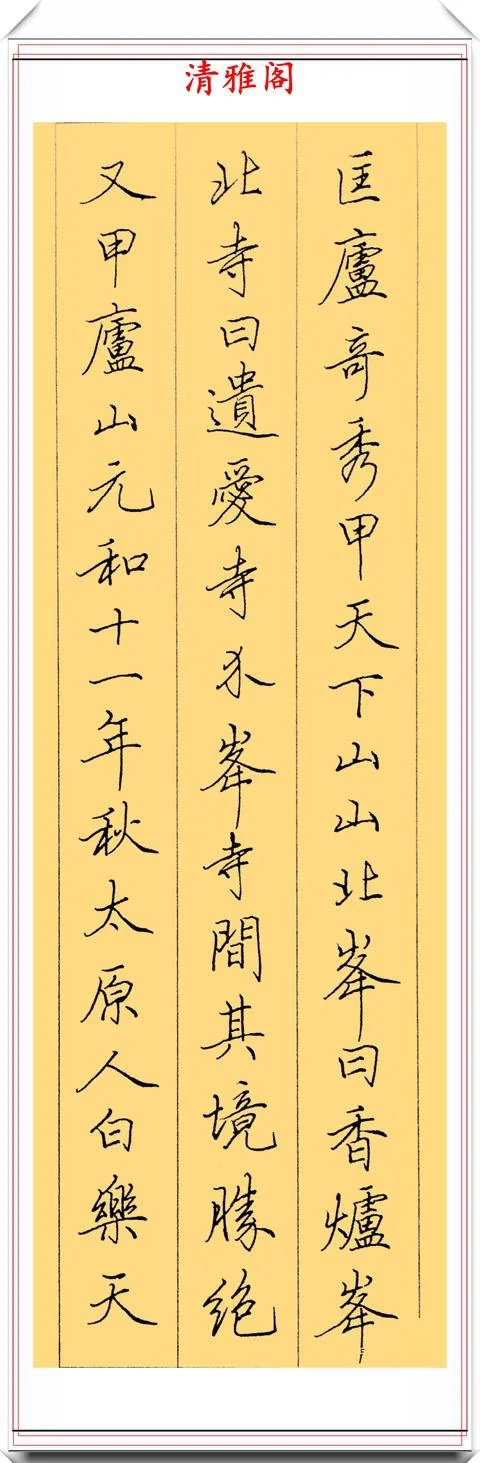 清雅阁
匡廬奇秀甲天下山山北峯曰香爐峯
北寺曰遺愛寺介峯寺間其境勝絶
又甲廬山元和十一年秋太原人白樂天